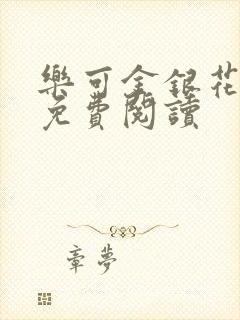 樂可金銀花
免費閱讀
章夢